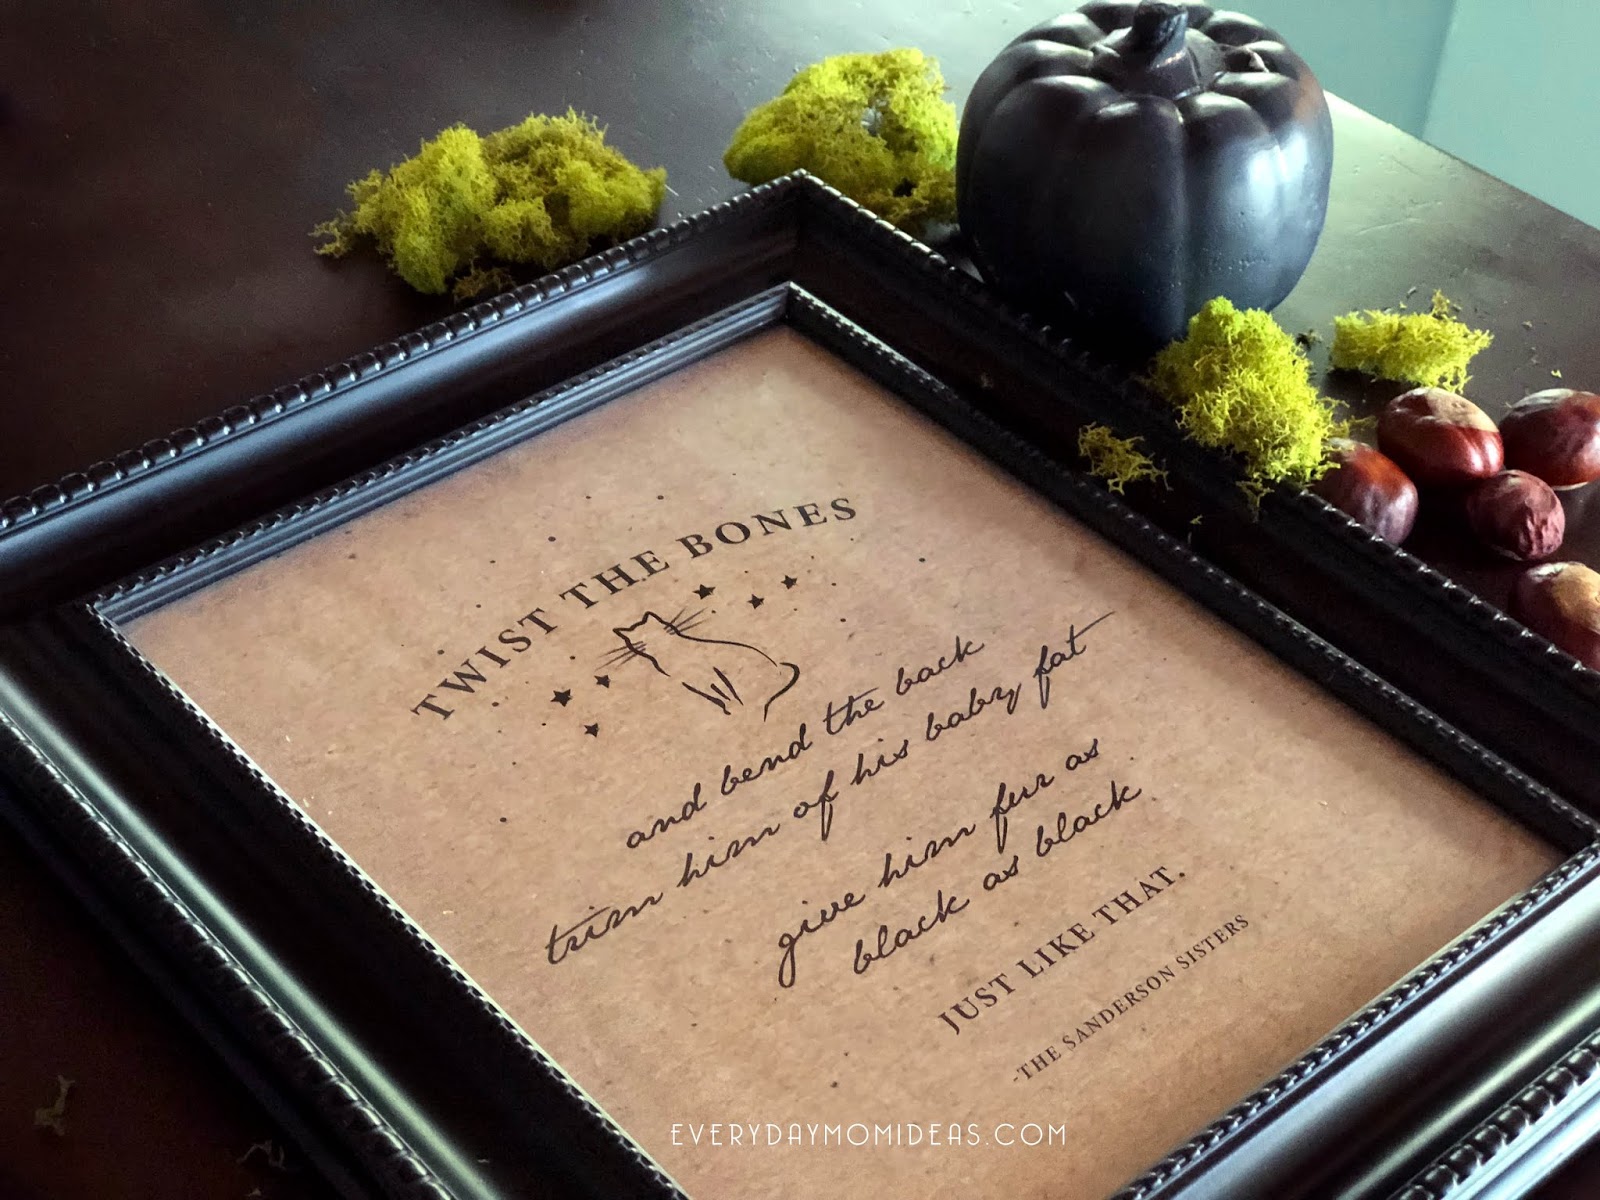 TWIST THE BONES
and bend the back
trim him of his baby fat
give him fur as
black as black
JUST LIKE THAT.
-THE SANDERSON SISTERS
EVERYDAYMOMIDEAS.COM